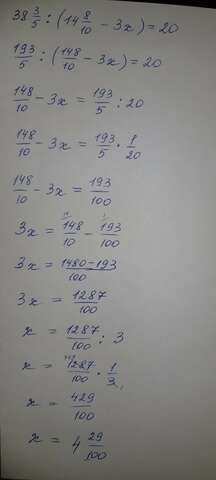 38 3/5 : (14 8/10 - 3x) = 20
193/5 : (148/10 - 3x) = 20
148/10 - 3x = 193/5 : 20
148/10 - 3x = 193/5 · 1/20
148/10 - 3x = 193/100
3x = 148/10 - 193/100
3x = 1480-193/100
3x = 1287/100
x = 1287/100 : 3
x = 1287/100 · 1/3
x = 429/100
x = 4 29/100